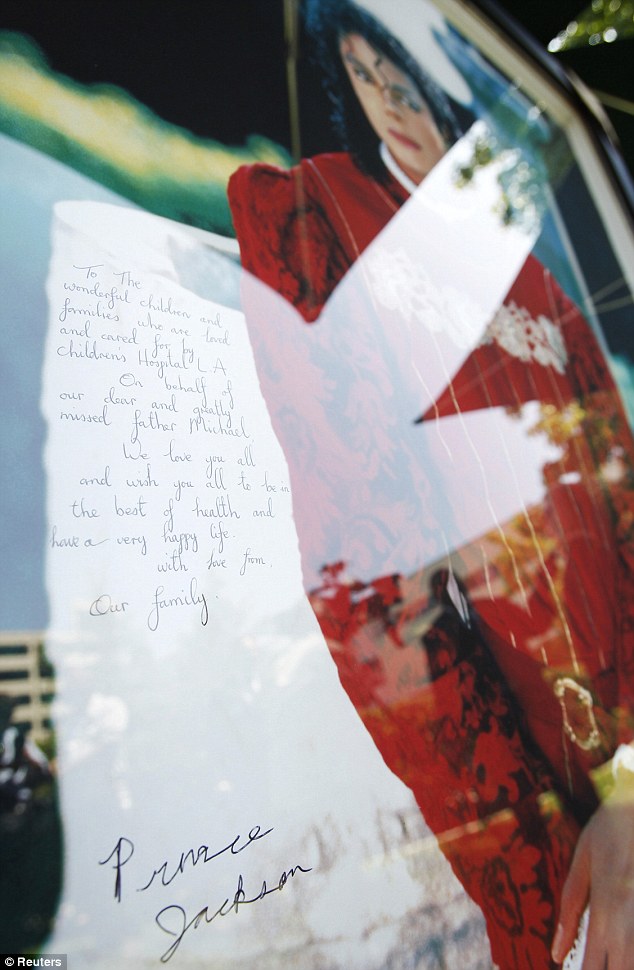 To The
wonderful children and
families who are loved
and cared for by
Children's Hospital L.A
On behalf of
our dear and greatly
missed father Michael.
We love you all
and wish you all to be in
the best of health and
have a very happy life.
with love from.
Our family.
Prince
Jackson
© Reuters